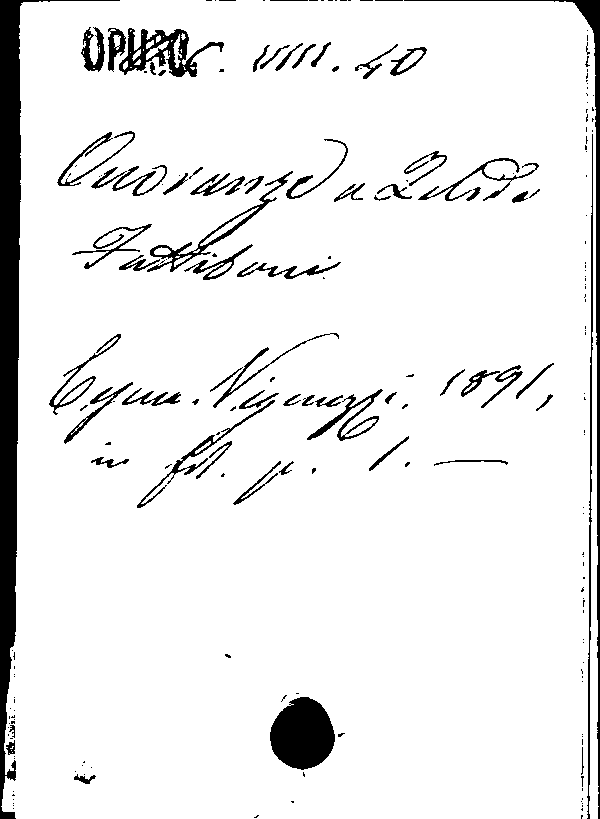 OPUSC. VIII. 40
Onoranze a Zelide
Fattiboni
Cesena. Vignuzzi. 1891,
in fol. p. 1. —